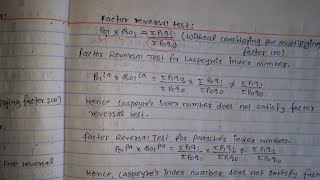 Factor reversal test:
P01 × Q01 = Σp1q1 / Σp0q0 (without considering the multiplying factor 100)
Factor Reversal Test for Laspeyre's index number.
P01 La × Q01 La = Σp1q0 / Σp0q0 × Σp0q1 / Σp0q0 ≠ Σp1q1 / Σp0q0
Hence Laspeyre's index number does not satisfy factor
reversal test.
factor Reversal Test for Paasche's index number.
P01 Pa × Q01 Pa = Σp1q1 / Σp0q1 × Σp1q1 / Σp1q0 ≠ Σp1q1 / Σp0q0
Hence, Laspeyre's Index number does not satisfy fact
plying factor 100)
time reversal